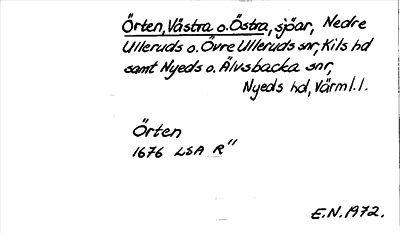 Örten, Västra o. Östra, sjöar, Nedre
Ulleruds o. Övre Ulleruds snr, Kils hd
samt Nyeds o. Älvsbacka snr,
Nyeds hd, Värml. l.
Örten
1676 LSA R"
E.N. 1972.